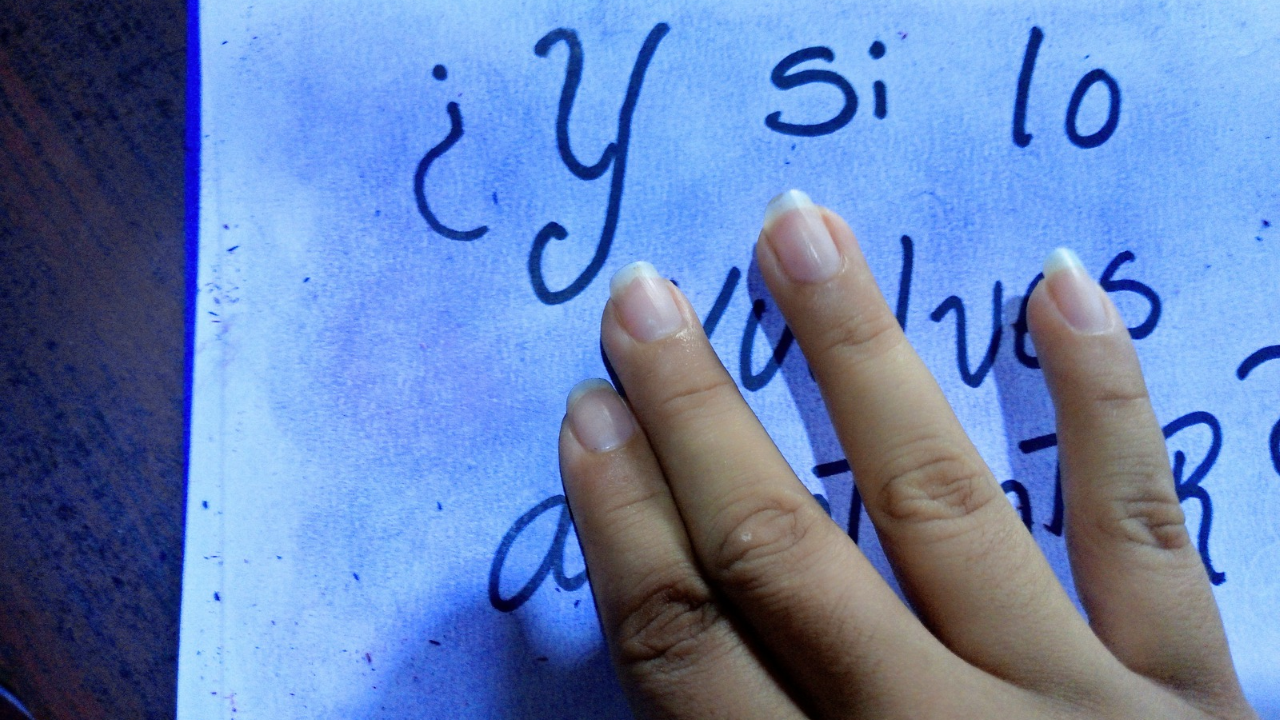 ¿Y si lo
vuelves
a